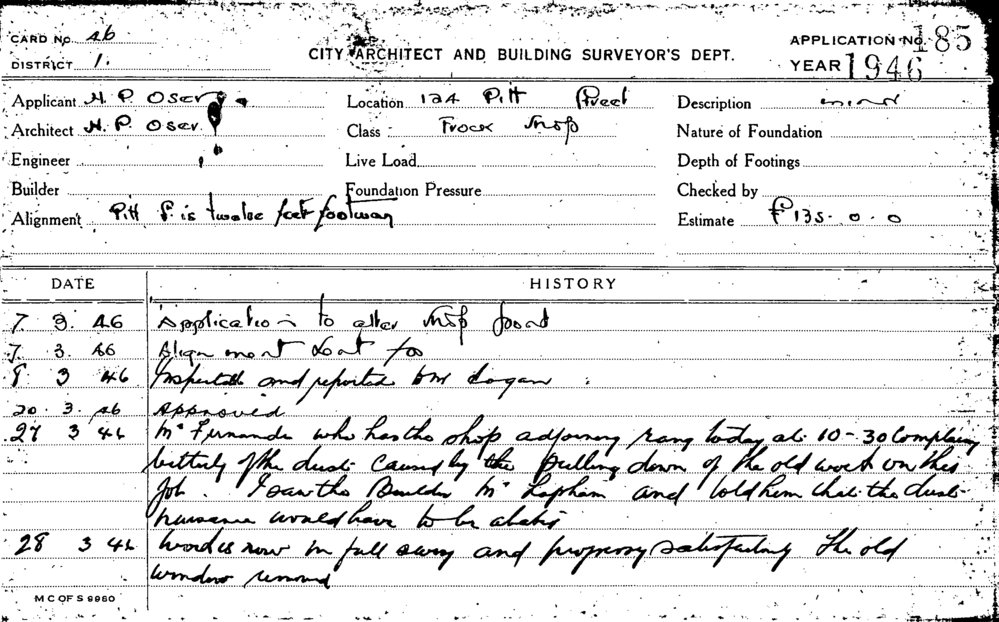 CARD No. 46
DISTRICT 1.
CITY ARCHITECT AND BUILDING SURVEYOR'S DEPT.
APPLICATION No. 185
YEAR 1946
Applicant H. P. Oser
Location 124 Pitt Street
Description minor
Architect H. P. Oser.
Class Frock Shop
Nature of Foundation
Engineer
Live Load
Depth of Footings
Builder
Foundation Pressure
Checked by
Alignment Pitt S. is twelve feet footway
Estimate £135. 0. 0
DATE
HISTORY
7 3. 46 Application to alter shop front
7. 3. 46 Alignment
8 3 46 Inspected and reported Mr Logan
20. 3. 46 Approved
27 3 46 Mr who has the shop adjoining rang today at 10-30 complaining
bitterly of the dust caused by the pulling down of the old work on this
job. I saw the Builder Mr Lapham and told him that the dust
nuisance would have to be abated
28 3 46 Work is now in full swing and progressing satisfactorily the old
window removed
M C OF S 9980